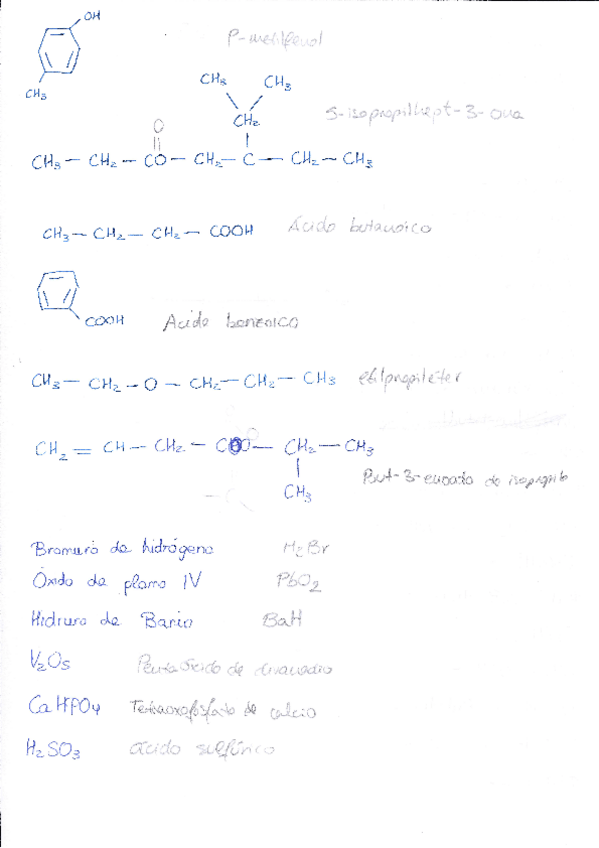 OH
P-metilfenol
CH3
CH3 CH3
CH2
5-isopropilhept-3-ona
O
CH3 — CH2 — CO — CH2 — C — CH2 — CH3
CH3 — CH2 — CH2 — COOH Ácido butanoico
COOH Acido benzoico
CH3 — CH2 - O - CH2 — CH2 — CH3 etilpropiléter
CH2 = CH — CH2 — COO — CH2 — CH3
CH3
But-3-enoato de isopropilo
Bromuro de hidrógeno H2Br
Óxido de plomo IV PbO2
Hidruro de Bario BaH
V2O5 Pentaóxido de divanadio
CaHPO4 Tetraoxofosfato de calcio
H2SO3 ácido sulfúrico